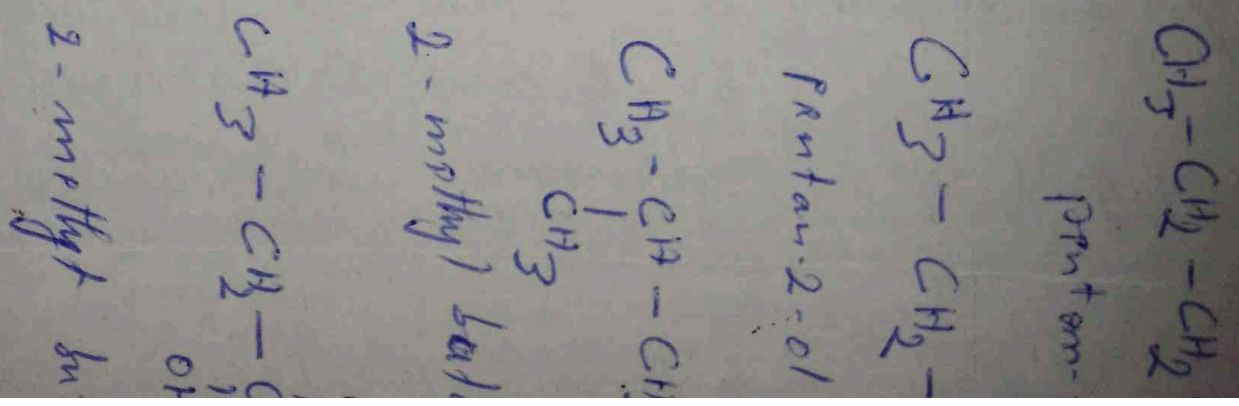 CH3-CH2-CH2
pentan-
CH3-CH2-
pentan-2-ol
CH3-CH-CH
CH3
2-methyl but
CH3-CH2-C
OH
2-methyl bu